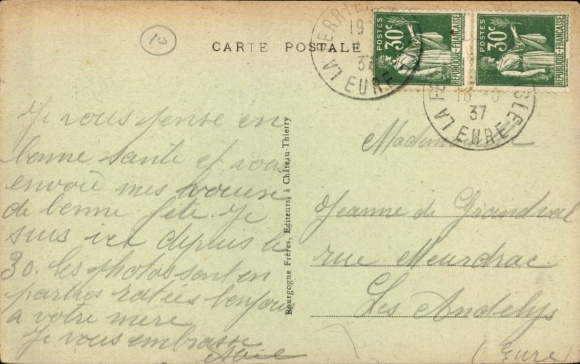 10
CARTE POSTALE
POSTES
30c
REPUBLIQUE-FRANÇAISE
POSTES
30c
REPUBLIQUE-FRANÇAISE
19
37
LA EURE
18
37
LA EURE
Je vous pense en
bonne santé et vous
envoie mes voeux
de bonne fête. Je
suis ici depuis le
30. les photos sont en
parties ratées bonjour
à votre mère
Je vous embrasse
Bourgogne Frères, Editeurs, à Château-Thierry
Jeanne de Grandval
rue Meurdrac
Les Andelys
(Eure)